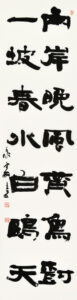 兩岸晚風黃鳥樹
一坡春水白鷗天